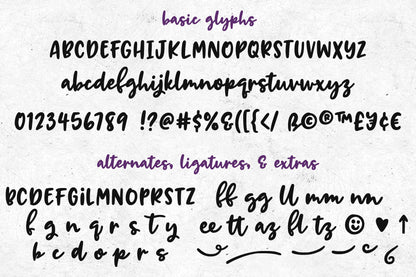 basic glyphs
ABCDEFGHIJKLMNOPQRSTUVWXYZ
abcdefghijklmnopqrstuvwxyz
0123456789 !?@#$%&([{</ ß©®™£¥€
alternates, ligatures, & extras
BCDEFGiLMNOPRSTZ ff gg ll mm nn
f g n q r s t y ee tt az fl tz ☺ ♥ ↑
b c d o p r s